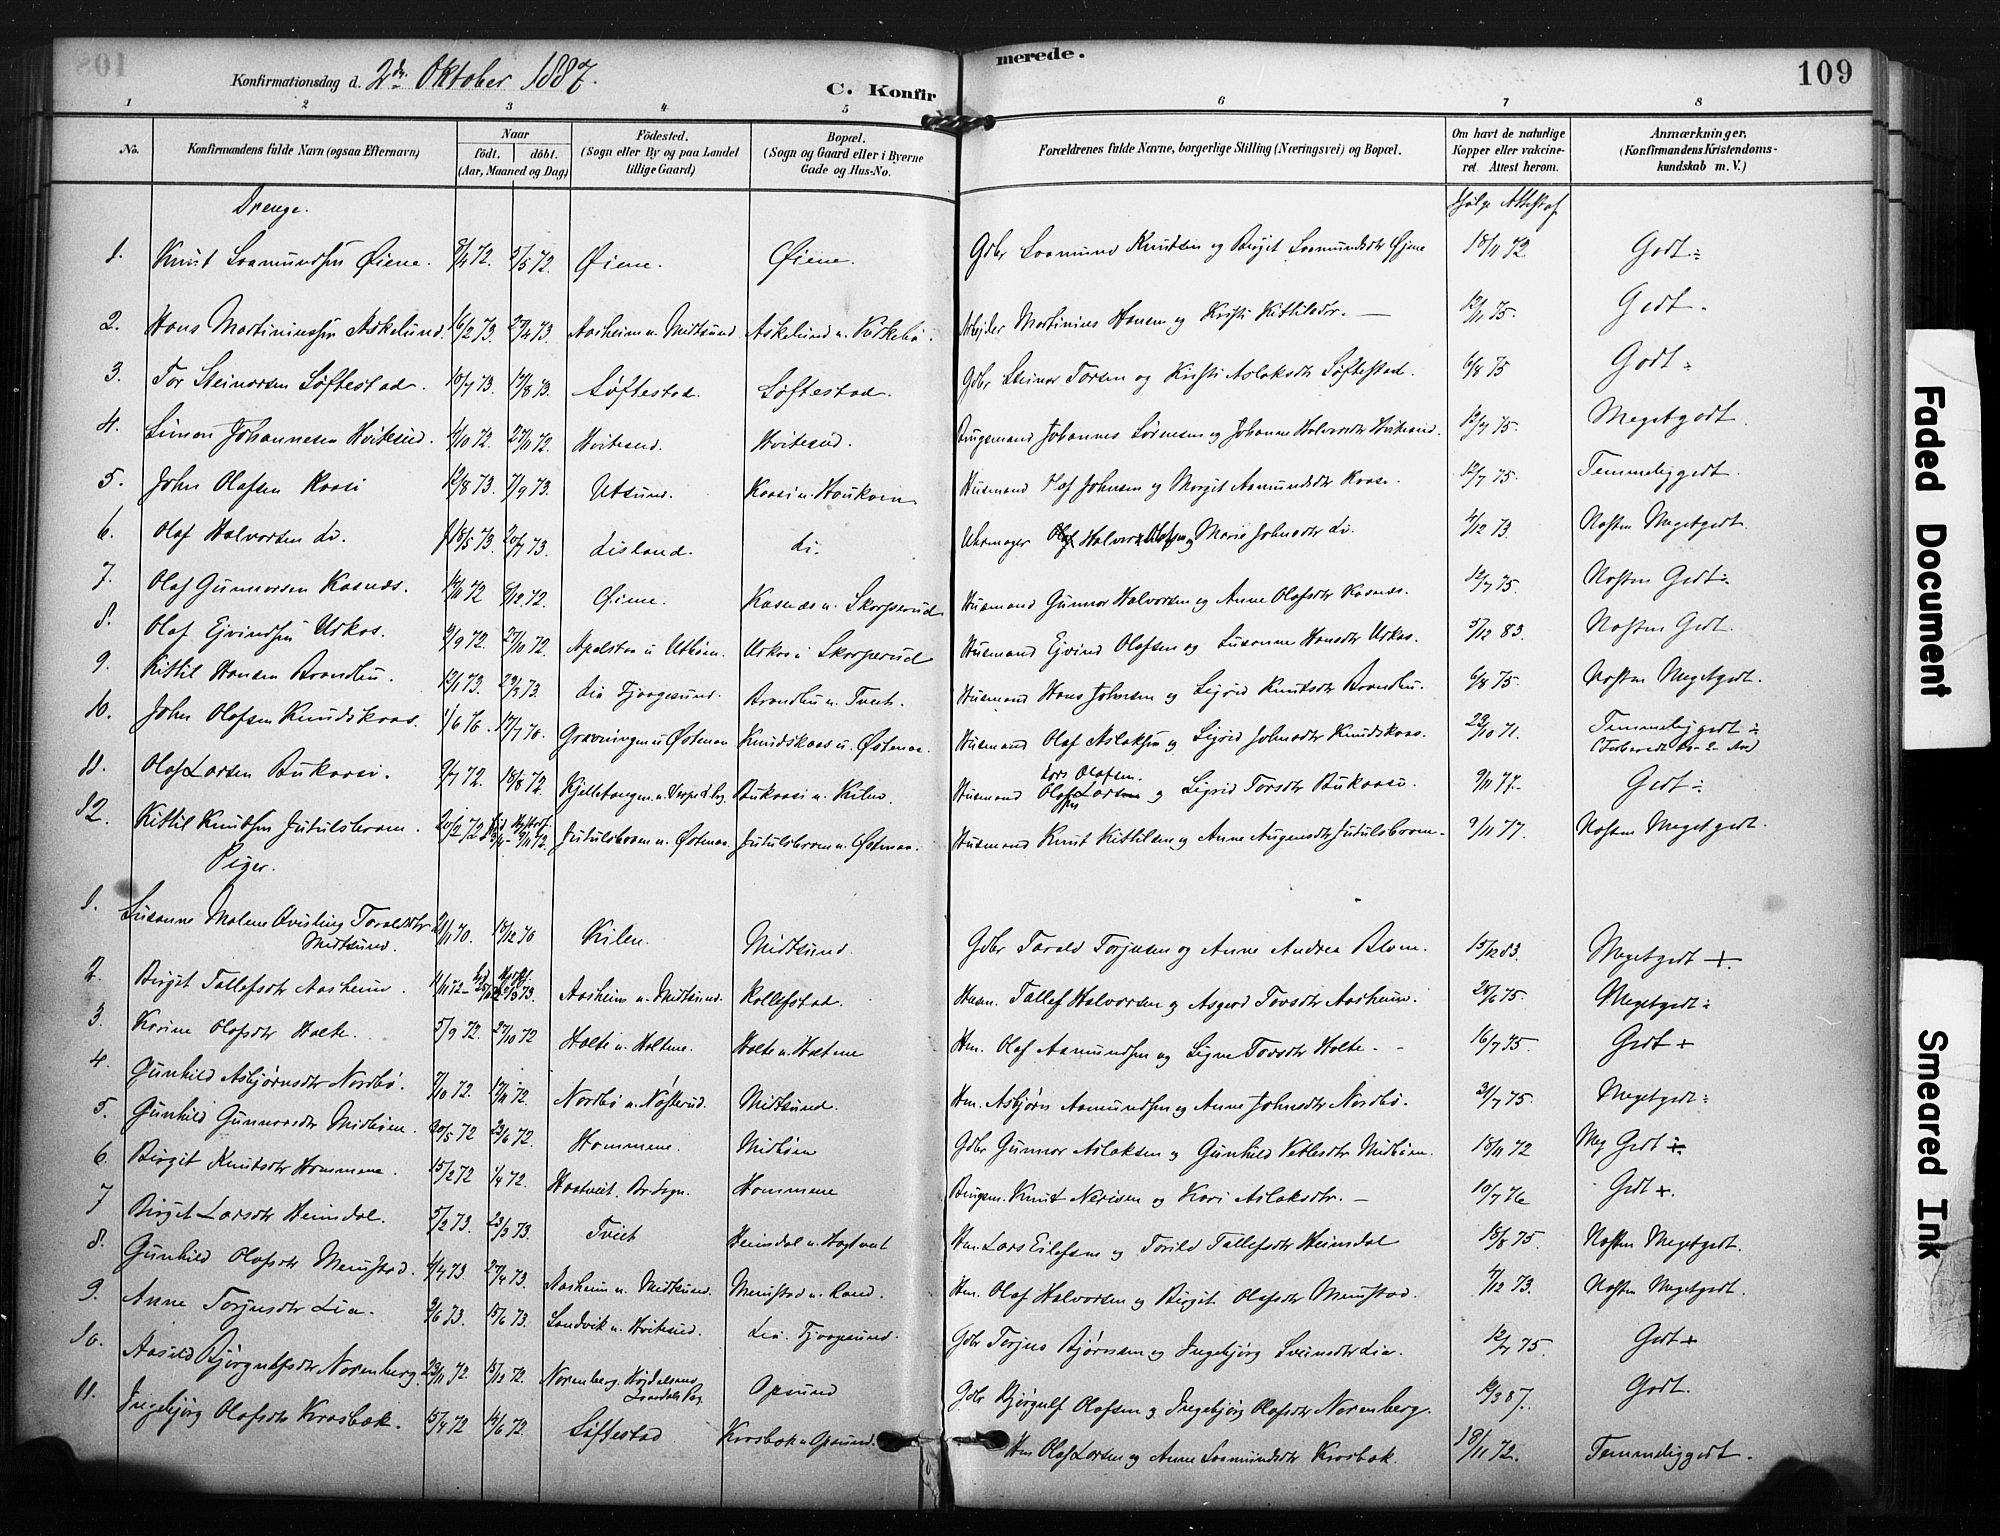 108
Konfirmationsdag d. 2den Oktober 1887.
C. Konfirmerede.
109
1 2 3 4 5 6 7 8
No.
Konfirmandens fulde Navn (ogsaa Efternavn)
Naar
födt. döbt.
(Aar, Maaned og Dag)
Födested.
(Sogn eller By og paa Landet tillige Gaard)
Bopæl.
(Sogn og Gaard eller i Byerne Gade og Hus-No.
Forældrenes fulde Navne, borgerlige Stilling (Næringsvei) og Bopæl.
Om havt de naturlige Kopper eller vakcineret. Attest herom.
Anmærkninger.
(Konfirmandens Kristendomskundskab m. V.)
Drenge.
Ifølge Attest af
1. Knut Saamundsen Øiene. 8/4 72. 5/5 72. Øiene. Øiene. Gdbr Saamund Knutsen og Birgit Saamundsdtr Øjene 18/11 72 Godt÷
2. Hans Martiniussen Askelund. 16/2 73. 27/4 73. Aasheim u. Midtsund. Askelund u. Kirkebø. Arbejder Martinius Hansen og Kristi Kittilsdtr. — 12/11 75. Godt.
3. Tor Steinarsen Løftestad. 10/7 73. 17/8 73. Løftestad. Løftestad. Gdbr Steinar Torsen og Kristi Aslaksdtr Løftestad. 6/8 75 Godt÷
4. Simon Johannesen Hvitesund. 4/10 72. 27/11 72. Hvitesund. Hvitesund. Brugsmand Johannes Sørensen og Johanne Halvorsdtr Hvitesund. 12/7 75. Megetgodt.
5. John Olafsen Kaasi 12/8 73. 7/9 73. Utsund. Kaasi u. Haukom Husmand Olaf Johnsen og Margit Aamundsdtr Kaase. 12/7 75. Temmeliggodt.
6. Olaf Halvorsen Li. 18/5 73. 20/7 73. Lisland. Li. Uhrmager Halvor Olafsen og Marie Johnsdtr Li. 4/12 73. Næsten Megetgodt.
7. Olaf Gunnarsen Kasnæs. 14/11 72 8/12 72. Øiene. Kasnæs u. Skorperud Husmand Gunnar Halvorsen og Anne Olafsdtr Kasnæs. 12/7 75. Næsten Godt÷
8. Olaf Ejvindsen Urkas. 2/9 72. 27/10 72. Apalstaa u Utbøen. Urkas u Skorperud Husmand Ejvind Olafsen og Susanne Hansdtr Urkas. 5/12 83. Næsten Godt.
9. Kittil Hansen Brandliu. 12/1 73. 29/3 73. Lia Fjaagesund. Brandliu u. Tveit. Husmand Hans Johnsen og Sigrid Knutsdtr Brandliu. 6/8 75. Næsten Megetgodt.
10. John Olafsen Knudskaas. 1/6 70. 17/7 70. Gravningen u Østenaa Knudskaas u. Østenaa. Husmand Olaf Aslaksen og Sigrid Johnsdtr Knudskaas. 29/10 71. Temmeliggodt÷
(Forberedt for 2. And)
11. Olaf Larsen Bukaasi. 9/7 72. 18/8 72. Kjelletangen u. Vraadal Bukaasi u. Kilen Husmand Lars Olafsen. og Sigrid Torsdtr Bukaasi. 9/11 77. Godt÷
12. Kittil Knutsen Jutulsbroen. 20/2 72 Jutulsbroen u. Østenaa. Jutulsbroen u. Østenaa. Husmand Knut Kittilsen og Anne Augensdtr Jutulsbroen 9/11 77. Næsten Megetgodt.
Piger.
1. Susanne Malene Qvisling Taraldsdtr Midtsund. 21/11 70. 17/12 70 Kilen. Midtsund. Gdbr Tarald Torjusen og Anne Andrea Blom. 15/12 83. Megetgodt +.
2. Birgit Tallefsdtr Aasheim. 1/11 72 Aasheim u. Midtsund. Rollefstad. Husm. Tallef Halvorsen og Asgerd Torsdtr Aasheim. 28/6 75. Megetgodt÷
3. Karine Olafsdtr Holte. 5/9 72. 27/10 72 Holte u. Holtene. Holte u. Holtene Hm. Olaf Aamundsen og Signe Torsdtr Holte. — 16/7 75. Godt +
4. Gunhild Asbjørnsdtr Nordbø. 7/10 72. 17/11 72. Nordbø u. Nøsterud. Midtsund. Hm. Asbjørn Aamundsen og Anne Johnsdtr Nordbø. 21/7 75. Megetgodt÷
5. Gunhild Gunnarsdtr Midbøen. 20/5 72 23/6 72. Hommene. Midbøen Gdbr Gunnar Aslaksen og Gunhild Vetlesdtr Midbøen. 18/11 72 Meg Godt ÷.
6. Birgit Knutsdtr Hommene. 15/2 72 1/4 72. Haatveit. Br. Sogn. Hommene Brugsm. Knut Nerisen og Kari Aslaksdtr. — 10/7 76 Godt +.
7 Birgit Larsdtr Heimdal. 5/2 73. 23/3 73. Tveit Heimdal u. Hogtveit Hm. Lars Eilefsen og Torild Tallefsdtr Heimdal 18/8 75. Næsten Megetgodt.
8. Gunhild Olafsdtr Menstad. 4/4 73. 27/4 73. Aasheim u. Midtsund. Menstad u. Rand. Hm. Olaf Halvorsen og Birgit Olafsdtr Menstad. 4/12 73. Næsten Megetgodt.
9. Anne Torjusdtr Lia. 9/6 73. 15/6 73. Sandvik u. Hvitesund. Lia. Fjaagesund. Gdbr Torjus Bjørnsen og Ingebjørg Sveinsdtr Lia. 12/7 75. Godt +
10. Aasild Bjørgulfsdtr Norenberg. 23/11 72. 15/12 72. Norenberg. Høidalsmo Laardals Pg. Opsund Gdbr Bjørgulf Olafsen og Ingebjørg Olafsdtr Norenberg. 12/3 87. Godt.
11. Ingebjørg Olafsdtr Krosbæk. 15/4 72 14/6 72. Løftestad Krosbæk u. Opsund. Hm Olaf Larsen og Anne Saamundsdtr Krosbæk. 18/11 72. Temmeliggodt.
Faded Document
Smeared Ink